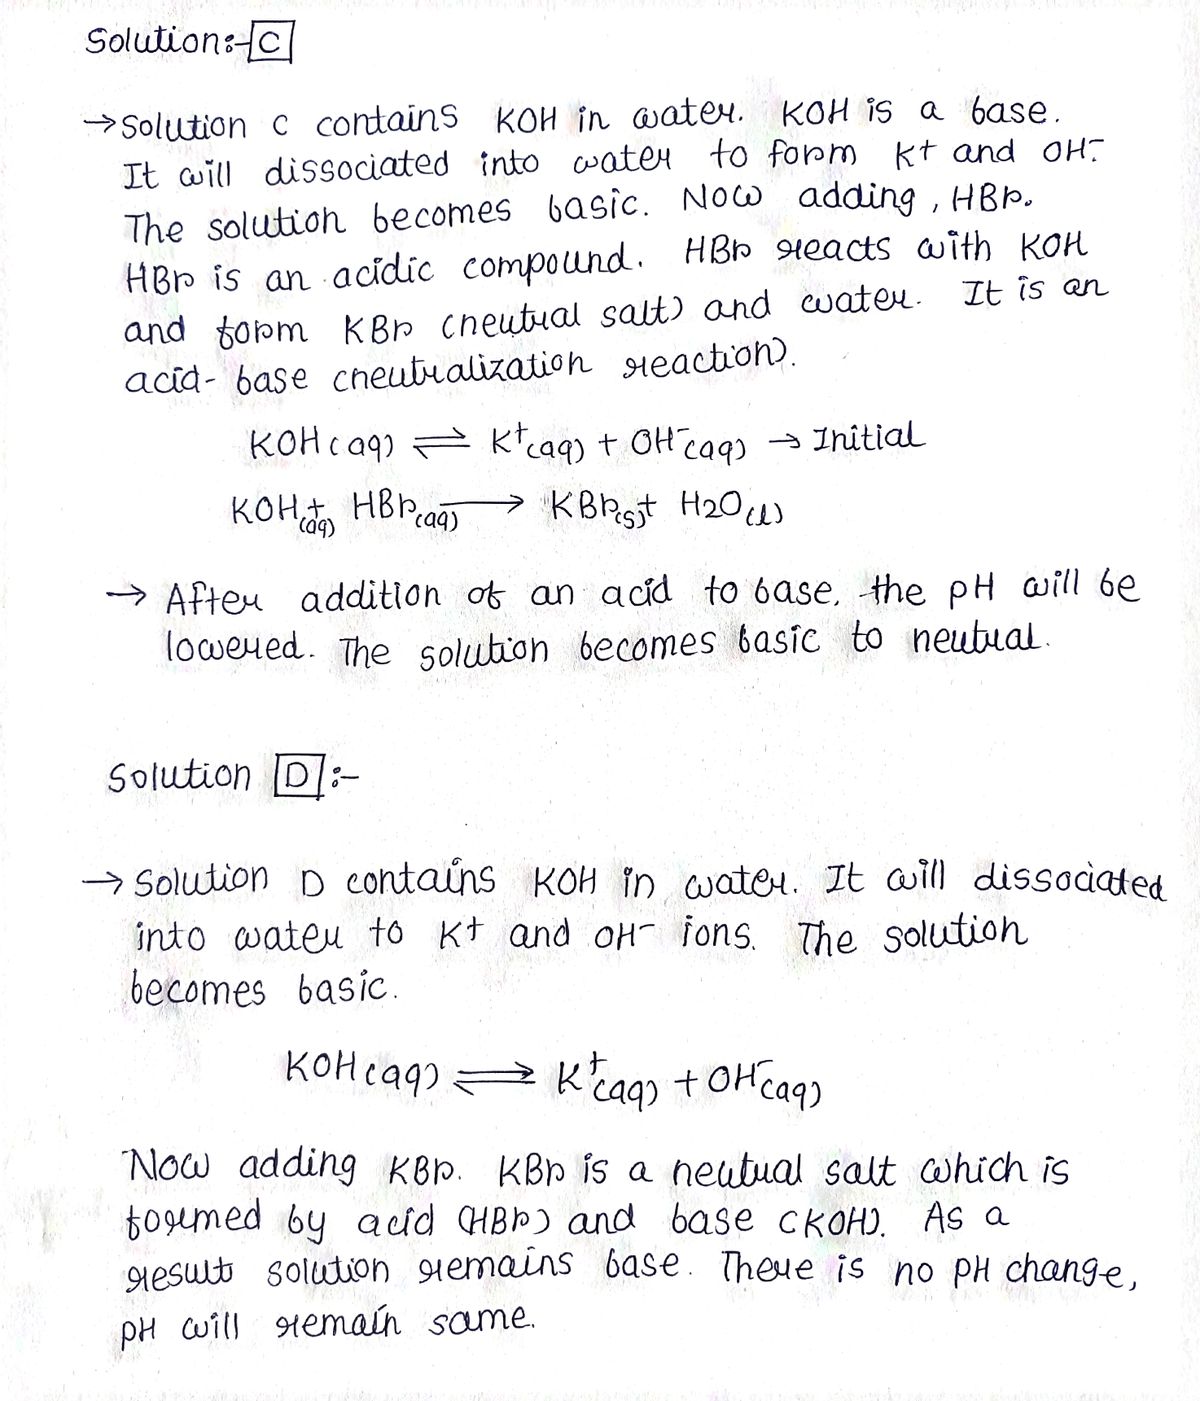 Solution:- C
→ Solution C contains KOH in water. KOH is a base.
It will dissociated into water to form K+ and OH-.
The solution becomes basic. Now adding, HBr.
HBr is an acidic compound. HBr reacts with KOH
and form KBr (neutral salt) and water. It is an
acid-base (neutralization reaction).
KOH(aq) ⇌ K+(aq) + OH-(aq) → Initial
KOH(aq) + HBr(aq) → KBr(s) + H2O(l)
→ After addition of an acid to base, the pH will be
lowered. The solution becomes basic to neutral.
Solution D :-
→ Solution D contains KOH in water. It will dissociated
into water to K+ and OH- ions. The solution
becomes basic.
KOH(aq) ⇌ K+(aq) + OH-(aq)
Now adding KBr. KBr is a neutral salt which is
formed by acid (HBr) and base (KOH). As a
result solution remains base. There is no pH change,
pH will remain same.